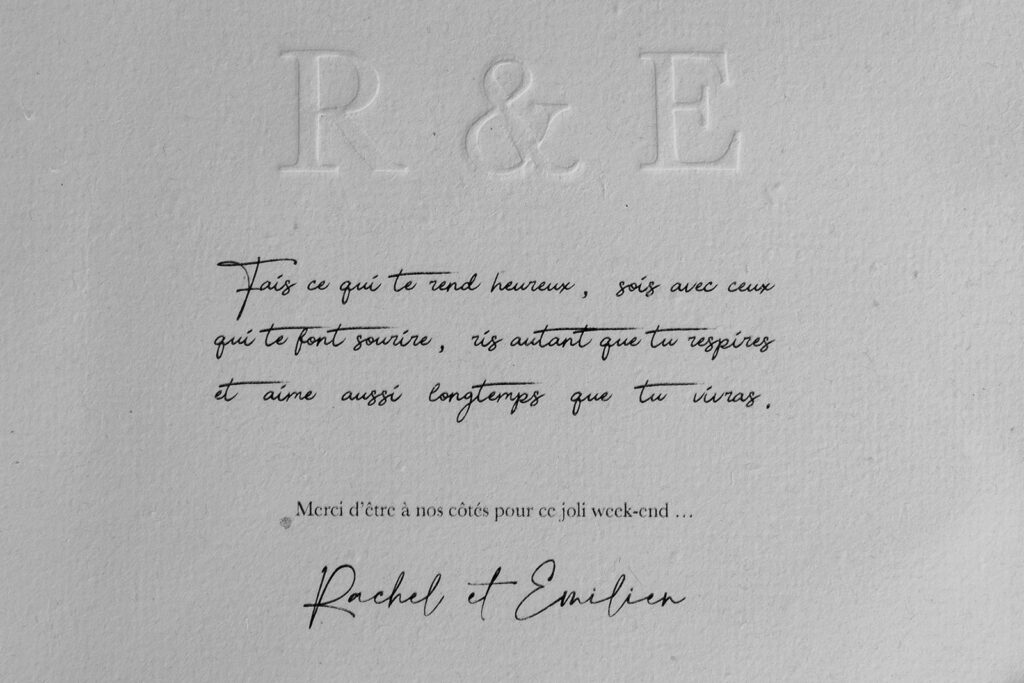 R & E
Fais ce qui te rend heureux, sois avec ceux
qui te font sourire, ris autant que tu respires
et aime aussi longtemps que tu vivras.
Merci d'être à nos côtés pour ce joli week-end ...
Rachel et Emilien